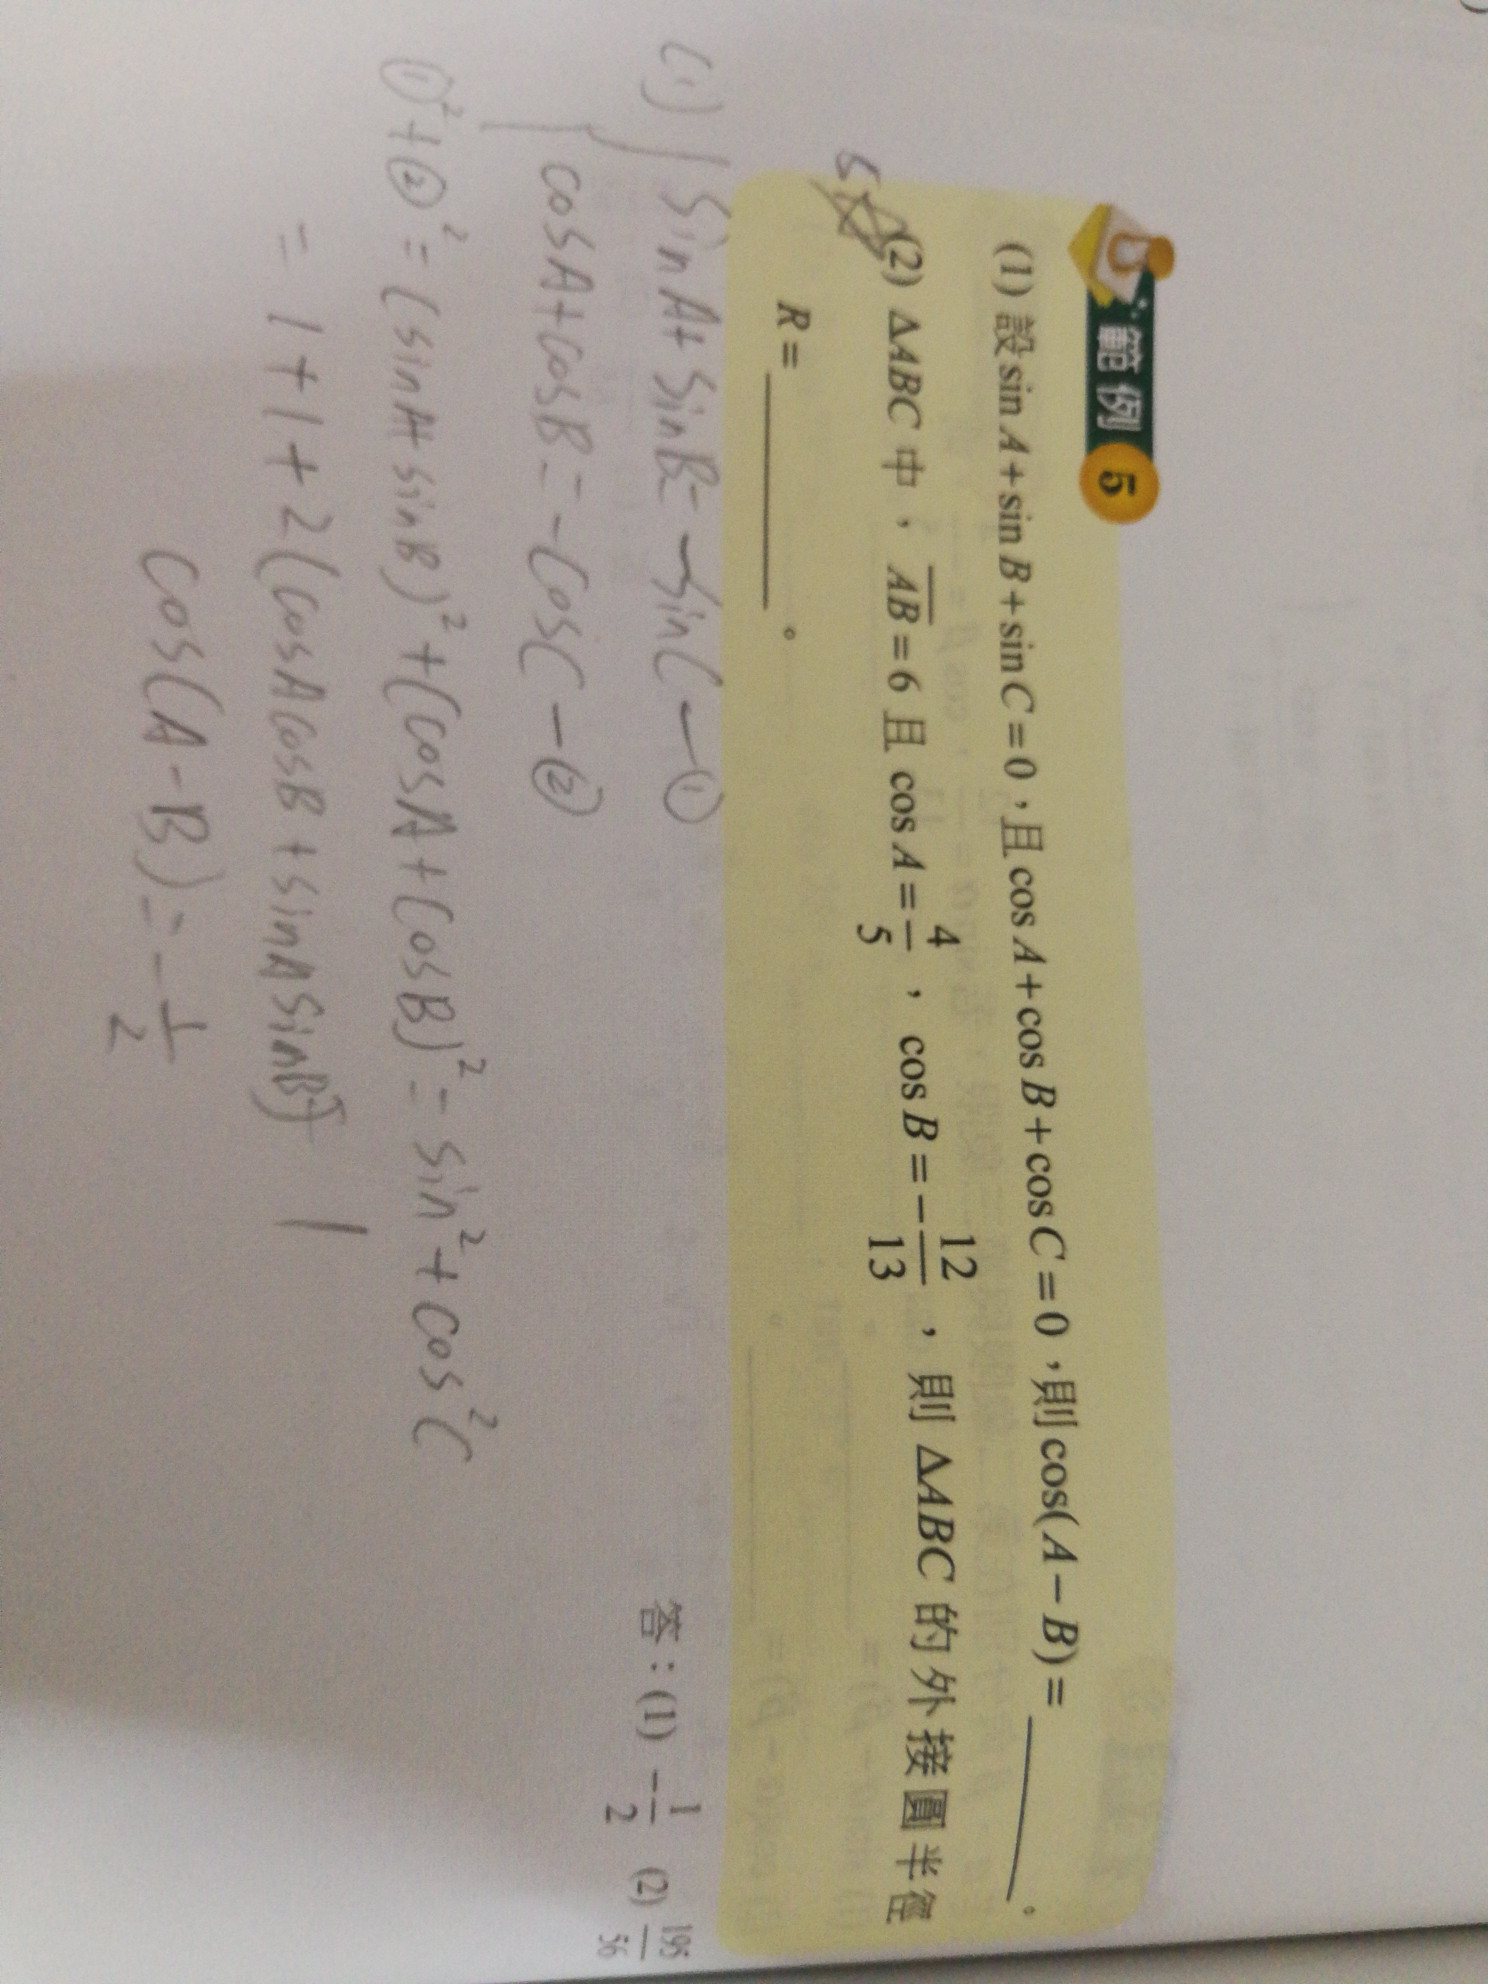 範例 5
(1) 設 sin A + sin B + sin C = 0，且 cos A + cos B + cos C = 0，則 cos(A − B) = ______。
(2) △ABC 中，\overline{AB} = 6 且 cos A = 4/5，cos B = −12/13，則 △ABC 的外接圓半徑
R = ______。
答：(1) −1/2 (2) 195/56
(1) { sinA + sinB = −sinC —①
cosA + cosB = −cosC —②
①² + ②² = (sinA + sinB)² + (cosA + cosB)² = sin² + cos²C
= 1 + 1 + 2(cosAcosB + sinAsinB) = 1
cos(A − B) = −1/2